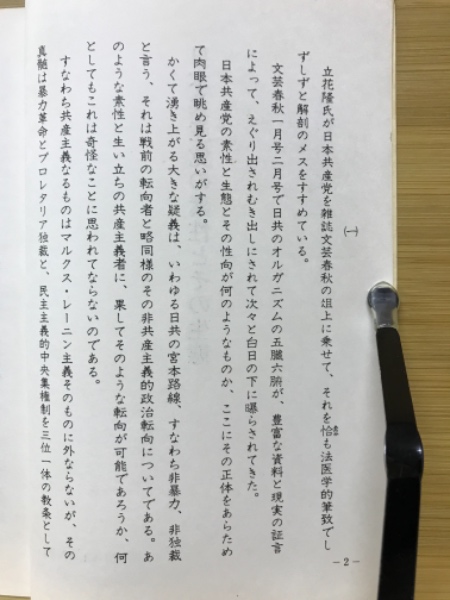 (一)
立花隆氏が日本共産党を雑誌文芸春秋の俎上に乗せて、それを恰も法医学的筆致でし
ずしずと解剖のメスをすすめている。
文芸春秋一月号二月号で日共のオルガニズムの五臓六腑が、豊富な資料と現実の証言
によって、えぐり出されむき出しにされて次々と白日の下に曝らされてきた。
日本共産党の素性と生態とその性向が何のようなものか、ここにその正体をあらため
て肉眼で眺め見る思いがする。
かくて湧き上がる大きな疑義は、いわゆる日共の宮本路線、すなわち非暴力、非独裁
と言う、それは戦前の転向者と略同様のその非共産主義的政治転向についてである。あ
のような素性と生い立ちの共産主義者に、果してそのような転向が可能であろうか、何
としてもこれは奇怪なことに思われてならないのである。
すなわち共産主義なるものはマルクス・レーニン主義そのものに外ならないが、その
真髄は暴力革命とプロレタリア独裁と、民主主義的中央集権制を三位一体の教条として
－2－